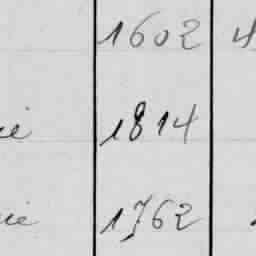 1602 4
ie 1814
ie 1762